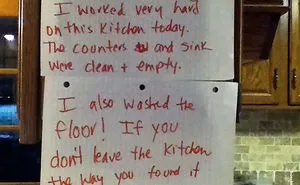 I worked very hard
on this kitchen today.
The counters and sink
were clean + empty.
I also washed the
floor! If you
don't leave the kitchen
the way you found it